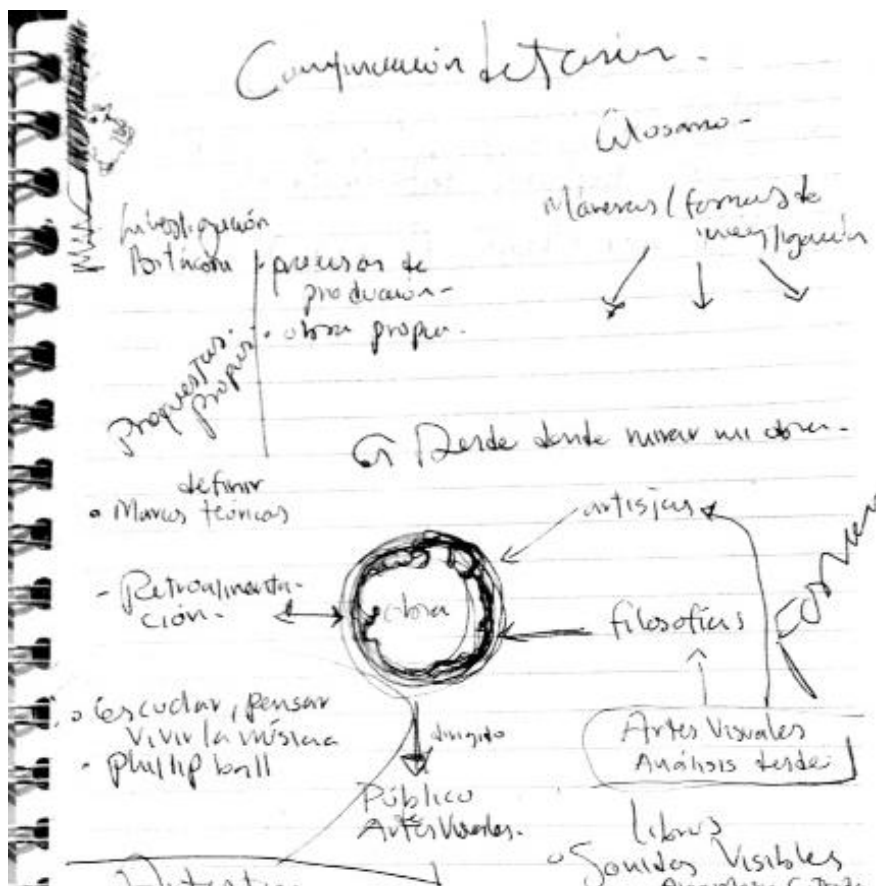 Glosario -
Maneras / formas de
investigación
Investigación
Bitácora
• procesos de
producción -
• obra propia.
Propuestas
propias
Desde donde mirar mi obra -
definir
• Marcos teóricos
artistas
- Retroalimenta-
ción -
obra
filosofías
• Escuchar, pensar
vivir la música
- Phillip ball
dirigido
Público
Artes Visuales.
Artes Visuales
Análisis desde
Libros
• Sonidos Visibles